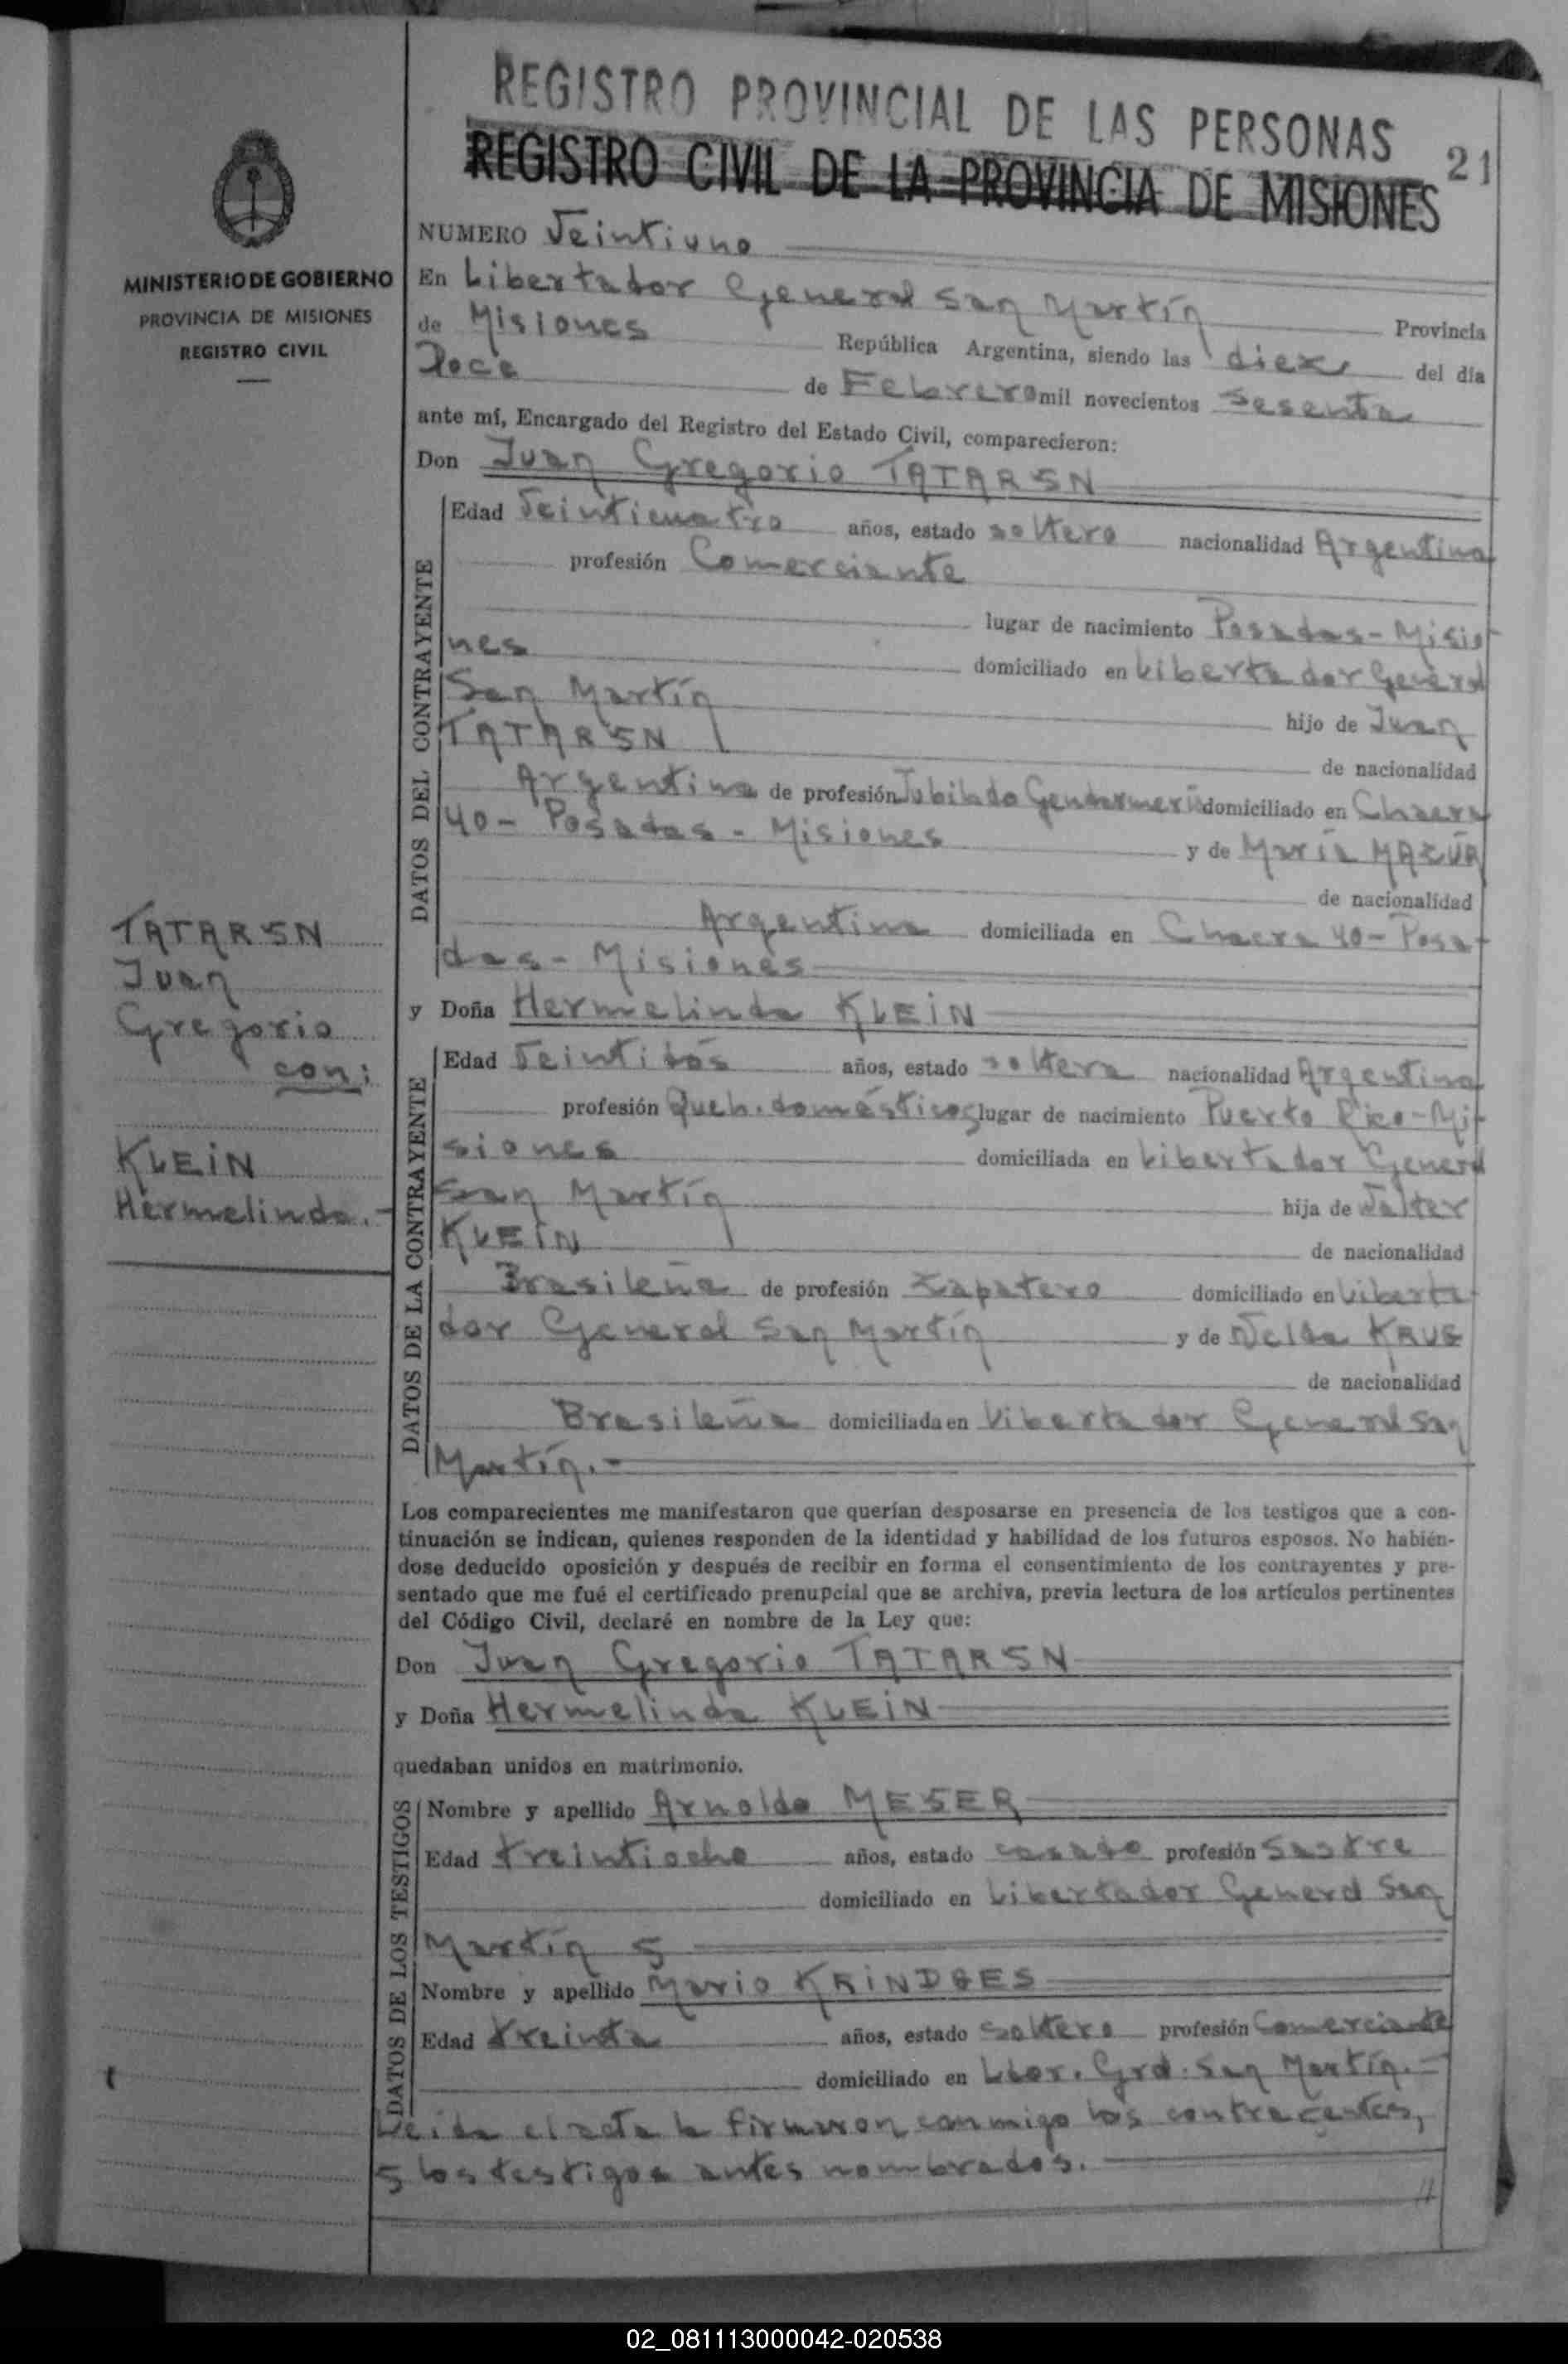 REGISTRO PROVINCIAL DE LAS PERSONAS
REGISTRO CIVIL DE LA PROVINCIA DE MISIONES
21
MINISTERIO DE GOBIERNO
PROVINCIA DE MISIONES
REGISTRO CIVIL
NUMERO Veintiuno
En Libertador General San Martín Provincia
de Misiones República Argentina, siendo las diez del día
Doce de Febrero mil novecientos sesenta
ante mí, Encargado del Registro del Estado Civil, comparecieron:
Don Juan Gregorio TATARYN
DATOS DEL CONTRAYENTE
Edad Veinticuatro años, estado soltero nacionalidad Argentina
profesión Comerciante
lugar de nacimiento Posadas-Misio
nes domiciliado en Libertador General
San Martín hijo de Juan
TATARYN de nacionalidad
Argentina de profesión Jubilado Gendarmería domiciliado en Chacra
40- Posadas - Misiones y de María MAZUR
de nacionalidad
Argentina domiciliada en Chacra 40- Posa-
das- Misiones
TATARYN
Juan
Gregorio
con:
KLEIN
Hermelinda.-
y Doña Hermelinda KLEIN
DATOS DE LA CONTRAYENTE
Edad Veintidós años, estado soltera nacionalidad Argentina
profesión Queh. domésticos lugar de nacimiento Puerto Rico-Mi-
siones domiciliada en Libertador General
San Martín hija de Walter
KLEIN de nacionalidad
Brasileña de profesión Zapatero domiciliado en Liberta-
dor General San Martín y de Welda KRUG
de nacionalidad
Brasileña domiciliada en Libertador General San
Martín.-
Los comparecientes me manifestaron que querían desposarse en presencia de los testigos que a con-
tinuación se indican, quienes responden de la identidad y habilidad de los futuros esposos. No habién-
dose deducido oposición y después de recibir en forma el consentimiento de los contrayentes y pre-
sentado que me fué el certificado prenupcial que se archiva, previa lectura de los artículos pertinentes
del Código Civil, declaré en nombre de la Ley que:
Don Juan Gregorio TATARYN
y Doña Hermelinda KLEIN
quedaban unidos en matrimonio.
DATOS DE LOS TESTIGOS
Nombre y apellido Arnoldo MEYER
Edad treintiocho años, estado casado profesión Sastre
domiciliado en Libertador General San
Martín y
Nombre y apellido Mario KRINDGES
Edad treinta años, estado soltero profesión Comerciante
domiciliado en Ldor. Gral. San Martín.-
Leída el acta la firmaron conmigo los contrayentes,
y los testigos antes nombrados.
//
02_081113000042-020538